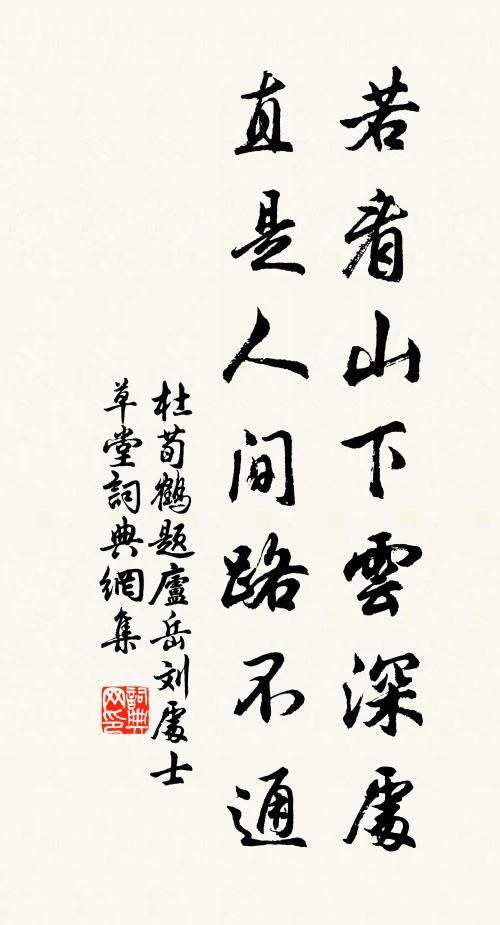 若看山下雲深處
直是人间路不通
杜荀鶴题廬岳刘處士
草堂詞典網集
詞典网印